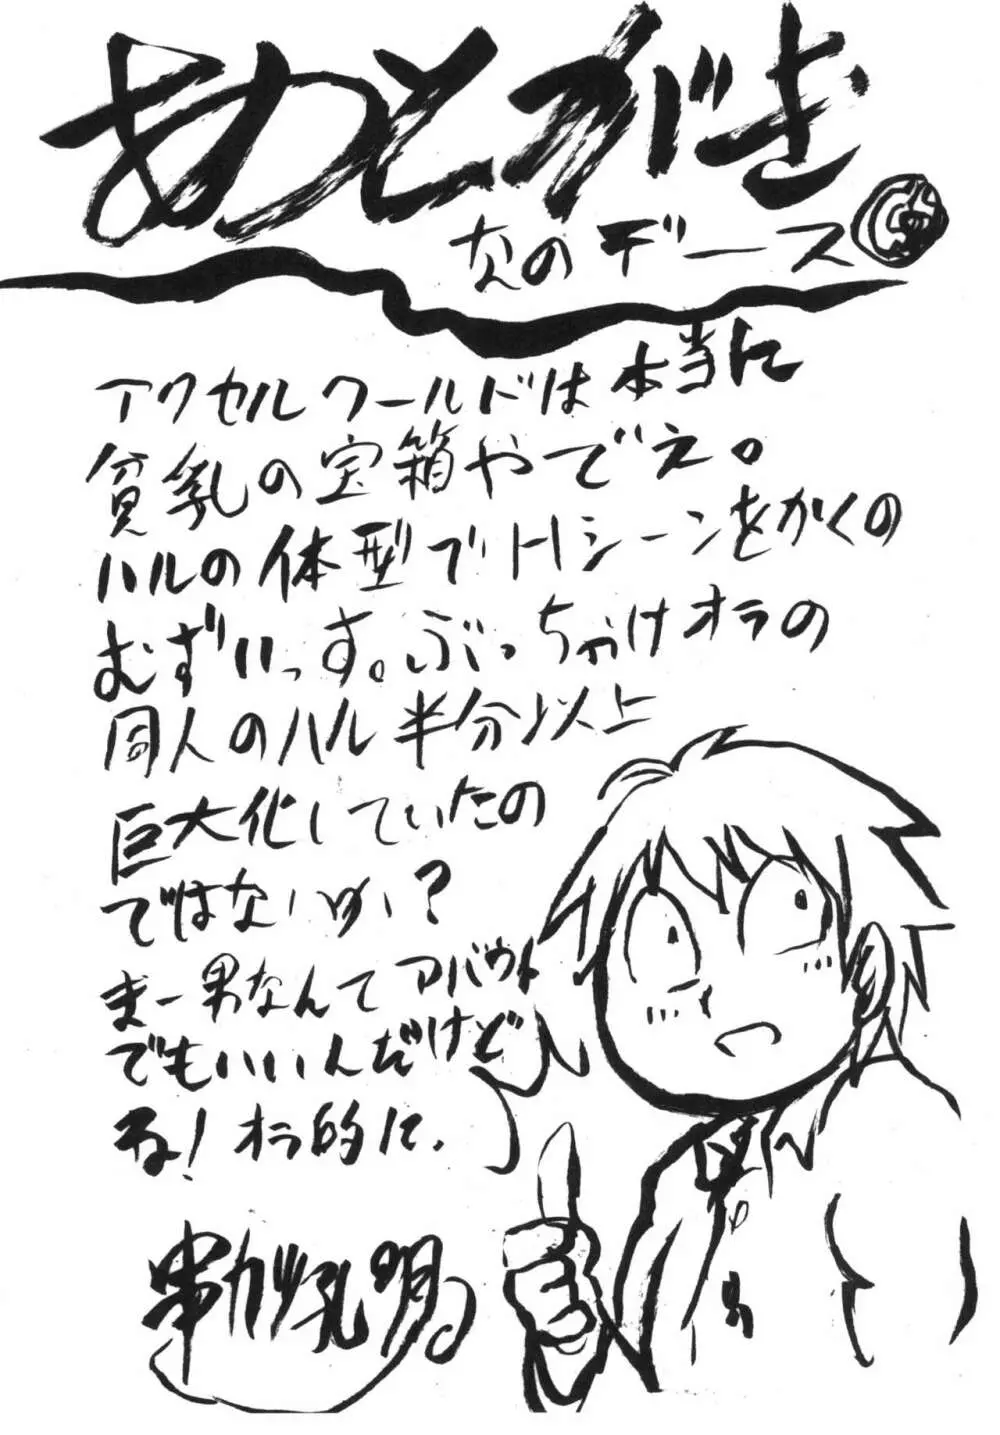 あとがき
なのデース
アクセルワールドは本当に
貧乳の宝箱やでぇ。
ハルの体型でHシーンをかくの
むずいっす。ぶっちゃけオラの
同人のハル半分以上
巨大化していたの
ではないか?
まー男なんてアバウト
でもいいんだけど
ね!オラ的に、
串カツ孔明